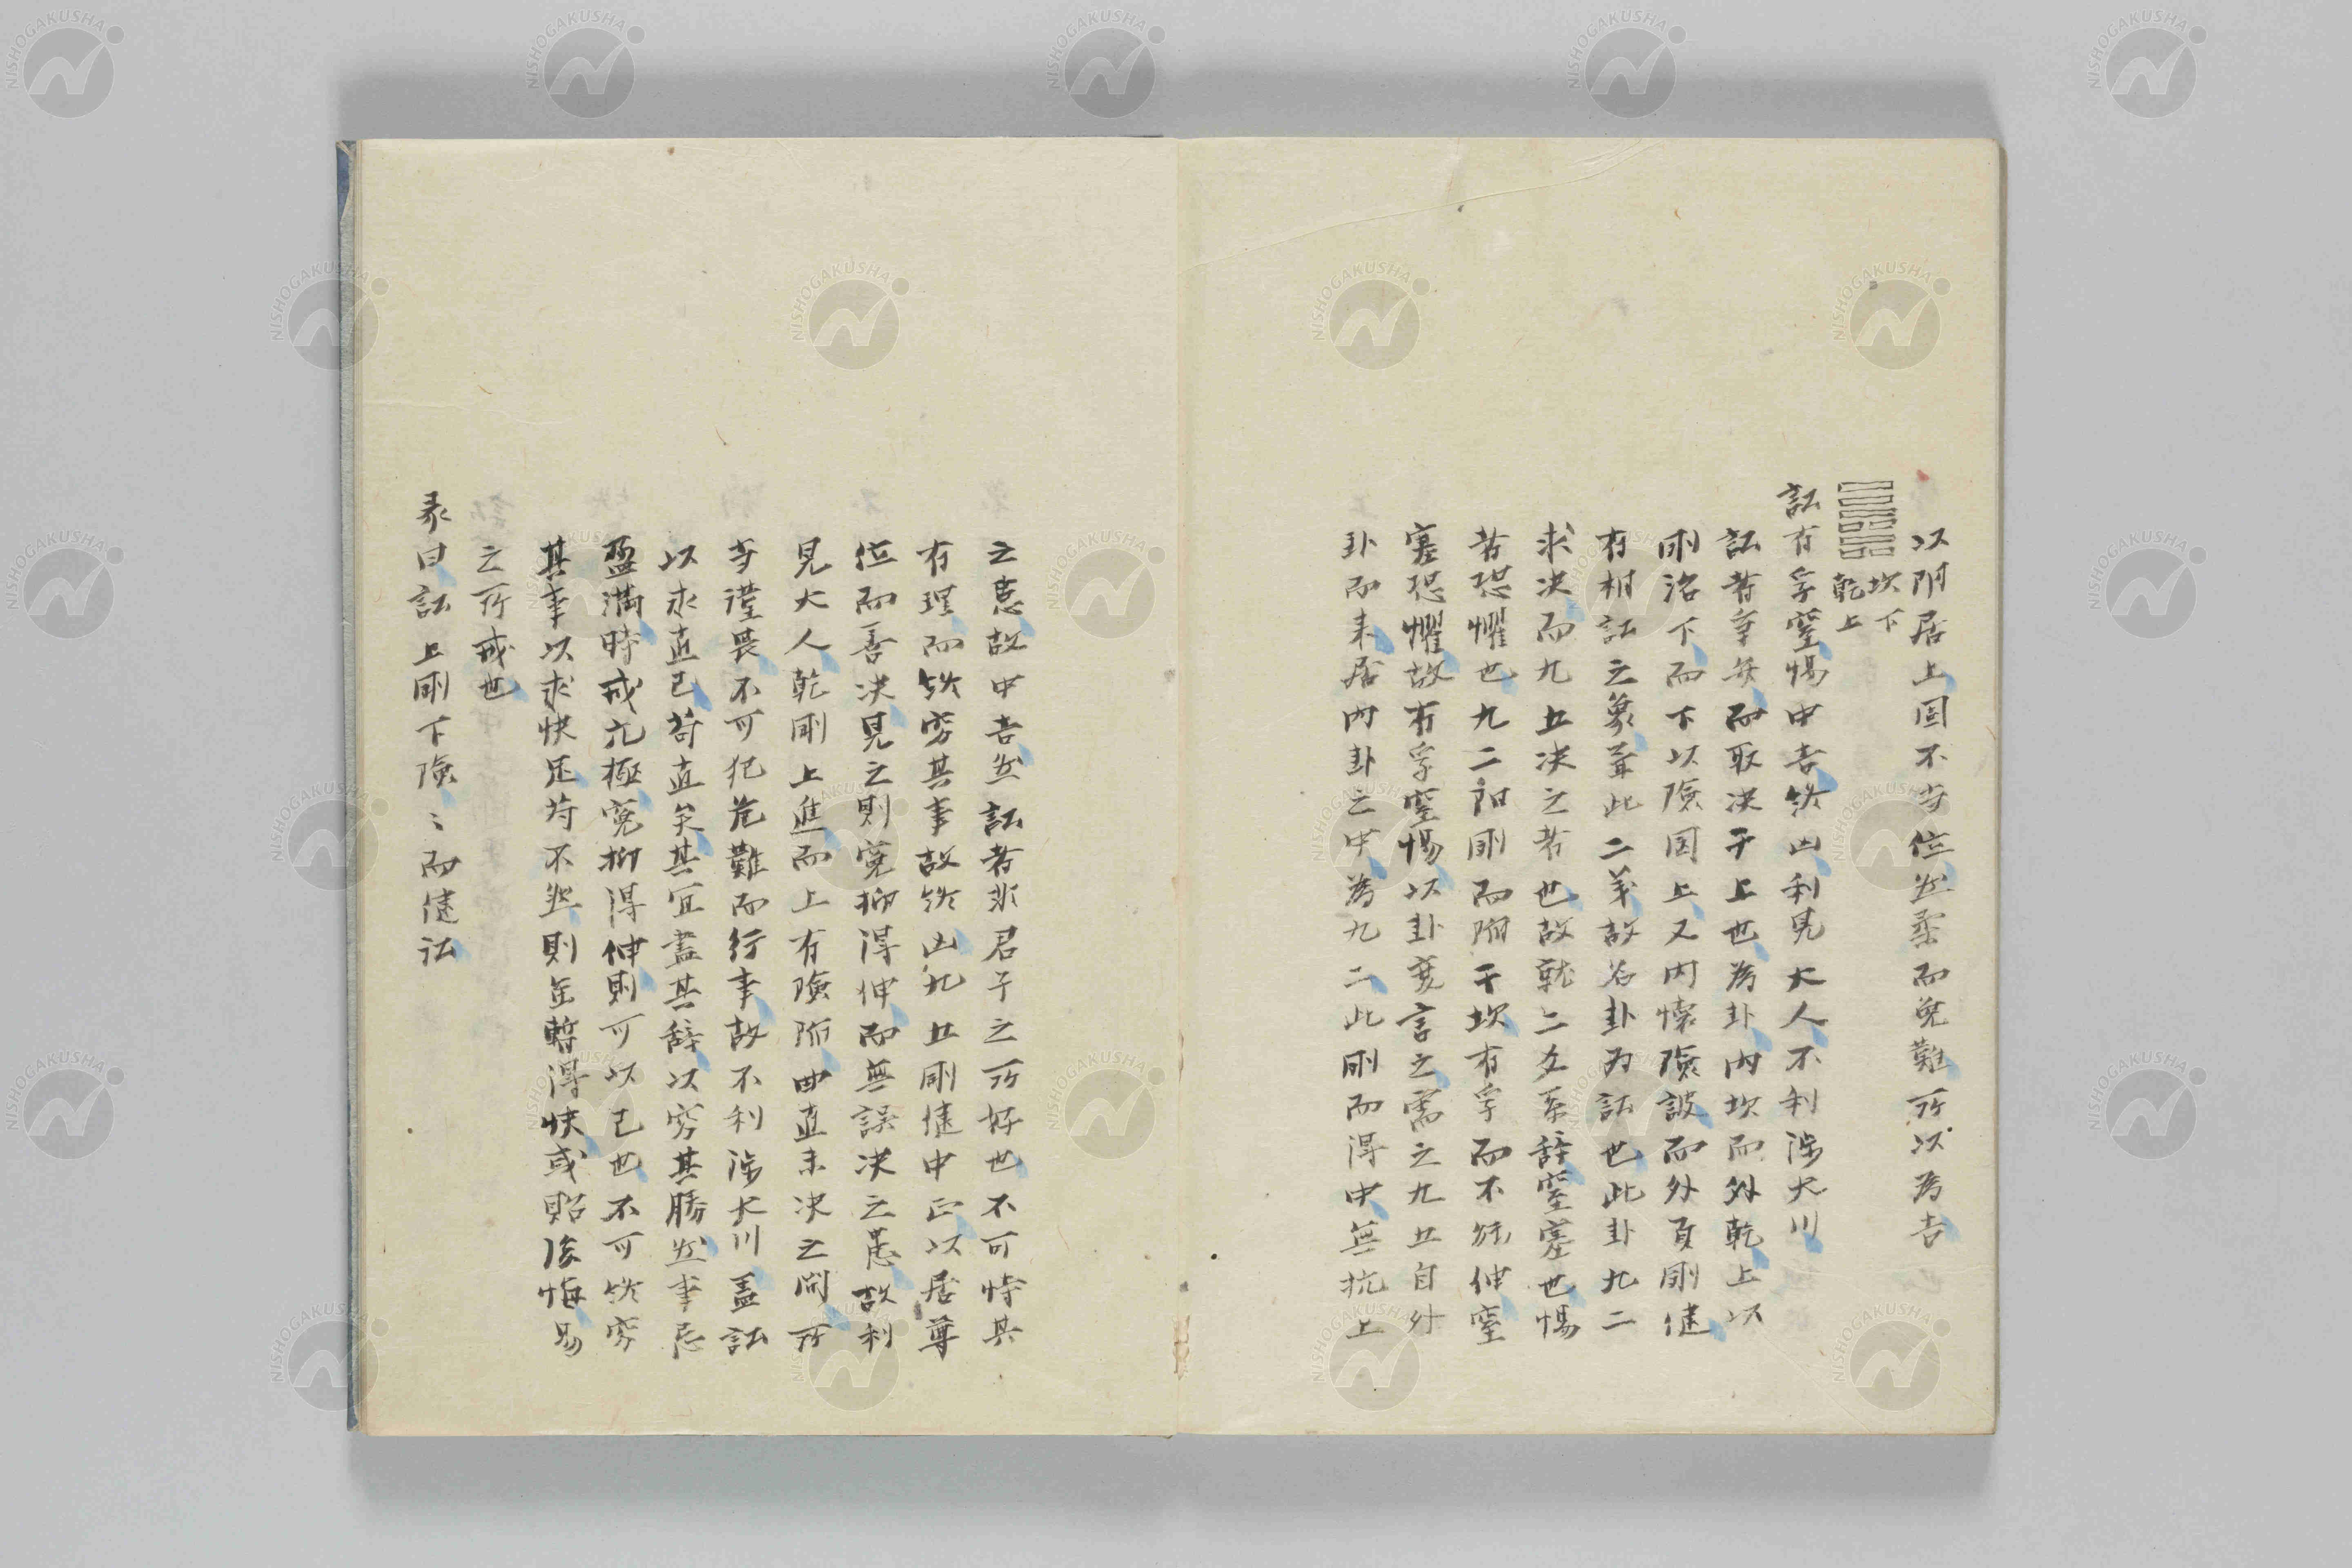 以阴居上固不当位然柔而免難所以為吉
坎下
乾上
訟有孚窒惕中吉終凶利見大人不利渉大川
訟者争弁而取决于上也為卦内坎而外乾上以
剛治下而下以險固上又内懐險詖而外負剛健
有相訟之象兼此二義故名卦为訟也此卦九二
求决而九五决之者也故就二爻系辞窒塞也惕
者恐懼也九二陽剛而陷于坎有孚而不能伸窒
塞恐懼故有孚窒惕以卦変言之需之九五自外
卦而来居内卦之中為九二此剛而得中無抗上
之慝故中吉然訟者非君子之所好也不可恃其
有理而終窮其事故終凶九五剛健中正以居尊
位而善决見之則寃抑得伸而無誤决之患故利
見大人乾剛上進而上有險陷曲直未决之間所
当謹畏不可犯危難而行事故不利渉大川盖訟
以求直己苟直矣其宜盡其辞以窮其勝然事忌
盈満時戒亢極寃抑得伸則可以已也不可終窮
其事以求快足苟不然則雖暫得快或貽後悔易
之所戒也
彖曰訟上剛下險〻而健訟
NISHOGAKUSHA